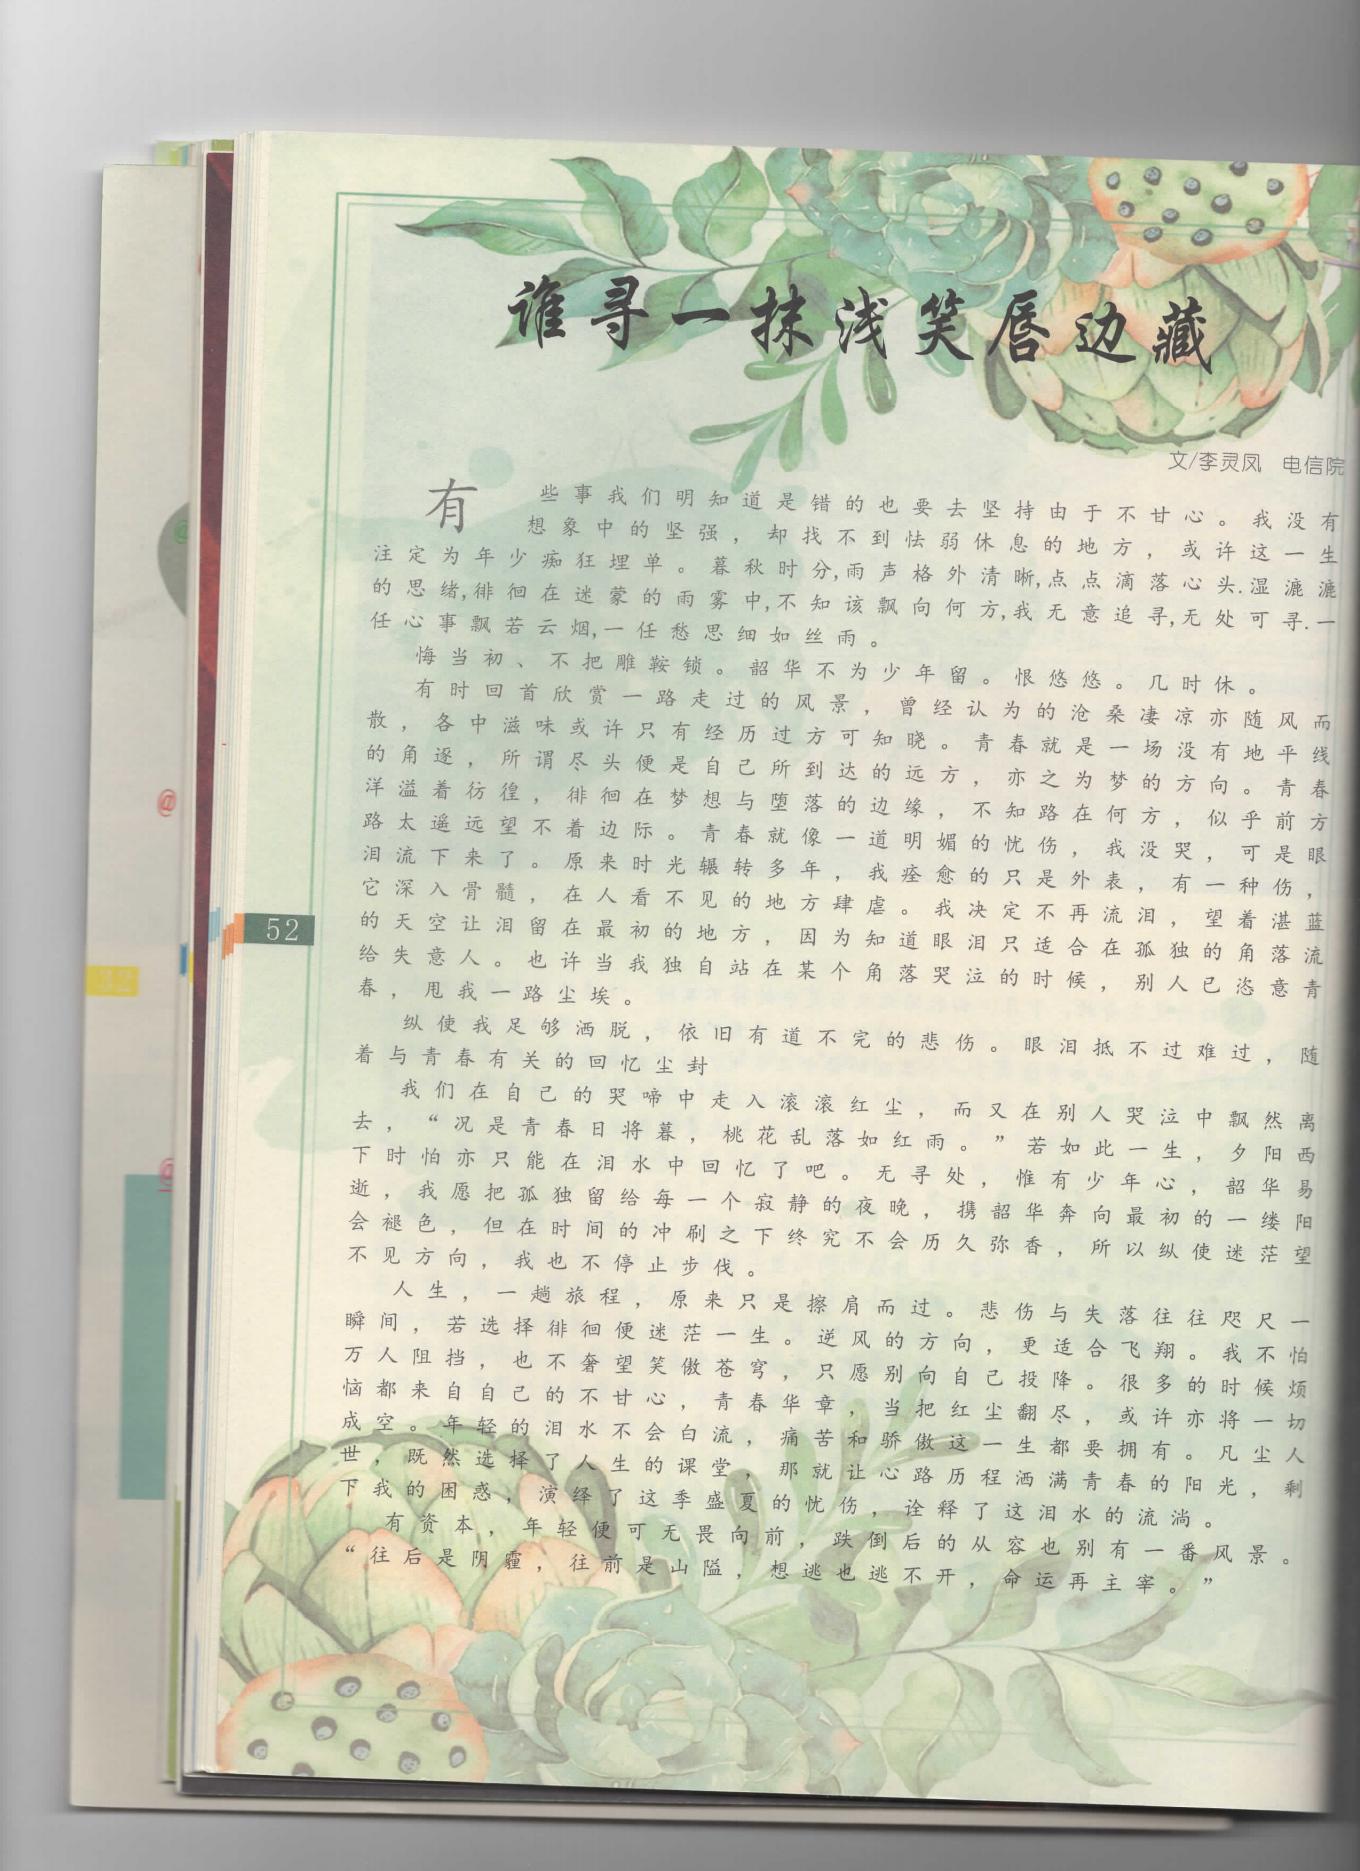 谁寻一抹浅笑唇边藏
文/李灵凤 电信院
有些事我们明知道是错的也要去坚持由于不甘心。我没有
想象中的坚强，却找不到怯弱休息的地方，或许这一生
注定为年少痴狂埋单。暮秋时分,雨声格外清晰,点点滴落心头.湿漉漉
的思绪,徘徊在迷蒙的雨雾中,不知该飘向何方,我无意追寻,无处可寻.一
任心事飘若云烟,一任愁思细如丝雨。
悔当初、不把雕鞍锁。韶华不为少年留。恨悠悠。几时休。
有时回首欣赏一路走过的风景，曾经认为的沧桑凄凉亦随风而
散，各中滋味或许只有经历过方可知晓。青春就是一场没有地平线
的角逐，所谓尽头便是自己所到达的远方，亦之为梦的方向。青春
洋溢着彷徨，徘徊在梦想与堕落的边缘，不知路在何方，似乎前方
路太遥远望不着边际。青春就像一道明媚的忧伤，我没哭，可是眼
泪流下来了。原来时光辗转多年，我痊愈的只是外表，有一种伤，
它深入骨髓，在人看不见的地方肆虐。我决定不再流泪，望着湛蓝
的天空让泪留在最初的地方，因为知道眼泪只适合在孤独的角落流
给失意人。也许当我独自站在某个角落哭泣的时候，别人已恣意青
春，甩我一路尘埃。
纵使我足够洒脱，依旧有道不完的悲伤。眼泪抵不过难过，随
着与青春有关的回忆尘封
我们在自己的哭啼中走入滚滚红尘，而又在别人哭泣中飘然离
去，“况是青春日将暮，桃花乱落如红雨。”若如此一生，夕阳西
下时怕亦只能在泪水中回忆了吧。无寻处，惟有少年心，韶华易
逝，我愿把孤独留给每一个寂静的夜晚，携韶华奔向最初的一缕阳
会褪色，但在时间的冲刷之下终究不会历久弥香，所以纵使迷茫望
不见方向，我也不停止步伐。
人生，一趟旅程，原来只是擦肩而过。悲伤与失落往往咫尺一
瞬间，若选择徘徊便迷茫一生。逆风的方向，更适合飞翔。我不怕
万人阻挡，也不奢望笑傲苍穹，只愿别向自己投降。很多的时候烦
恼都来自自己的不甘心，青春华章，当把红尘翻尽，或许亦将一切
成空。年轻的泪水不会白流，痛苦和骄傲这一生都要拥有。凡尘人
世，既然选择了人生的课堂，那就让心路历程洒满青春的阳光，剩
下我的困惑，演绎了这季盛夏的忧伤，诠释了这泪水的流淌。
有资本，年轻便可无畏向前，跌倒后的从容也别有一番风景。
“往后是阴霾，往前是山隘，想逃也逃不开，命运再主宰。”
52